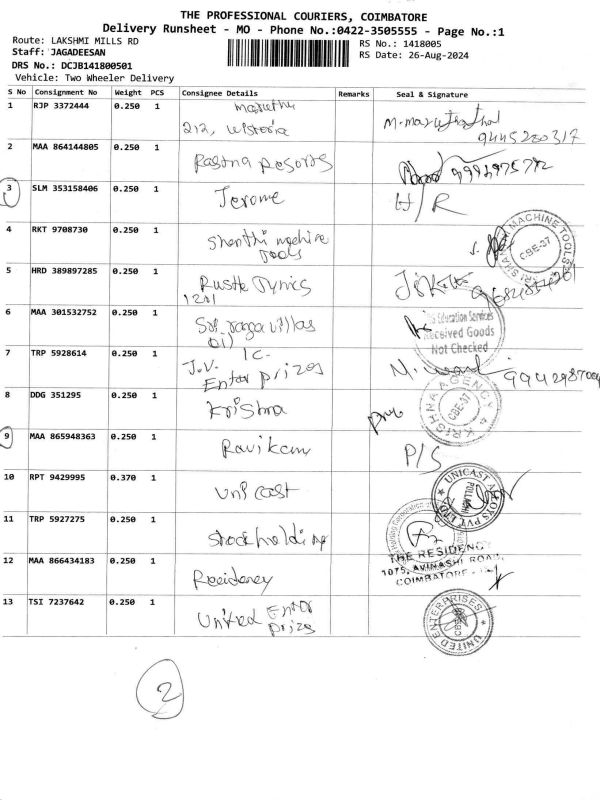 THE PROFESSIONAL COURIERS, COIMBATORE
Delivery Runsheet - MO - Phone No.:0422-3505555 - Page No.:1
Route: LAKSHMI MILLS RD
RS No.: 1418005
Staff: JAGADEESAN
RS Date: 26-Aug-2024
DRS No.: DCJB141800501
Vehicle: Two Wheeler Delivery
S No Consignment No Weight PCS Consignee Details Remarks Seal & Signature
1 RJP 3372444 0.250 1
212,
9445280317
2 MAA 864144805 0.250 1 Rastna Resorts
3 SLM 353158406 0.250 1 Jerome H/R
4 RKT 9708730 0.250 1 Shanthi machine
Tools
SRI SHA MACHINE TOOLS
CBE-37
5 HRD 389897285 0.250 1
1201
6 MAA 301532752 0.250 1 Sri ragavillas
Oil
Education Services
Received Goods
Not Checked
7 TRP 5928614 0.250 1 J.V. IC.
Enter prizes
8 DDG 351295 0.250 1 Krishna
KRISHNA AGENCY
CBE-37
9 MAA 865948363 0.250 1 Ravikam P/S
10 RPT 9429995 0.370 1 Uni cast
UNICAST ALLOYS PVT LTD
POLLACHI
11 TRP 5927275 0.250 1 Stock holding
THE RESIDENCY
1075, AVINASHI ROAD,
COIMBATORE
12 MAA 866434183 0.250 1 Residency
13 TSI 7237642 0.250 1 United Enter
prizs
UNITED ENTERPRISES
2